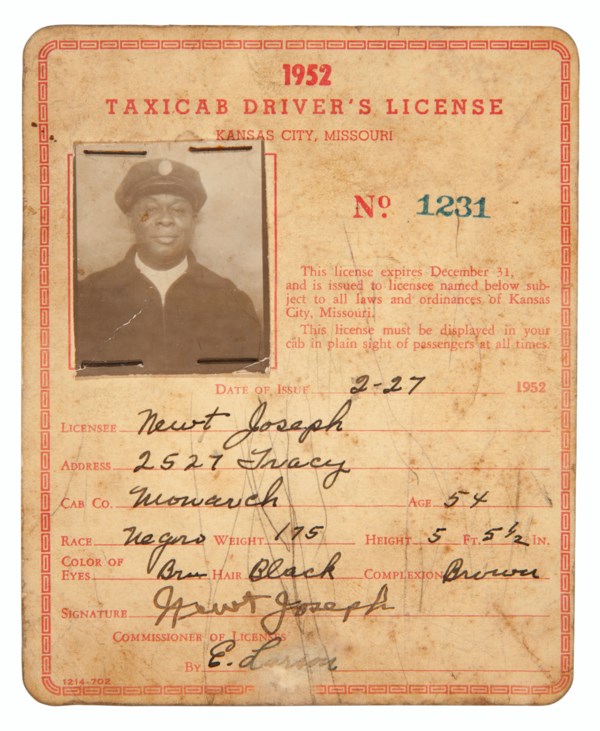 1952
TAXICAB DRIVER'S LICENSE
KANSAS CITY, MISSOURI
No 1231
This license expires December 31,
and is issued to licensee named below sub-
ject to all laws and ordinances of Kansas
City, Missouri.
This license must be displayed in your
cab in plain sight of passengers at all times.
DATE OF ISSUE 2-27 1952
LICENSEE Newt Joseph
ADDRESS 2527 Tracy
CAB CO. Monarch AGE 54
RACE Negro WEIGHT 175 HEIGHT 5 FT. 5 1/2 IN.
COLOR OF
EYES Brn HAIR Black COMPLEXION Brown
SIGNATURE Newt Joseph
COMMISSIONER OF LICENSES
BY E. Larson
1214-702